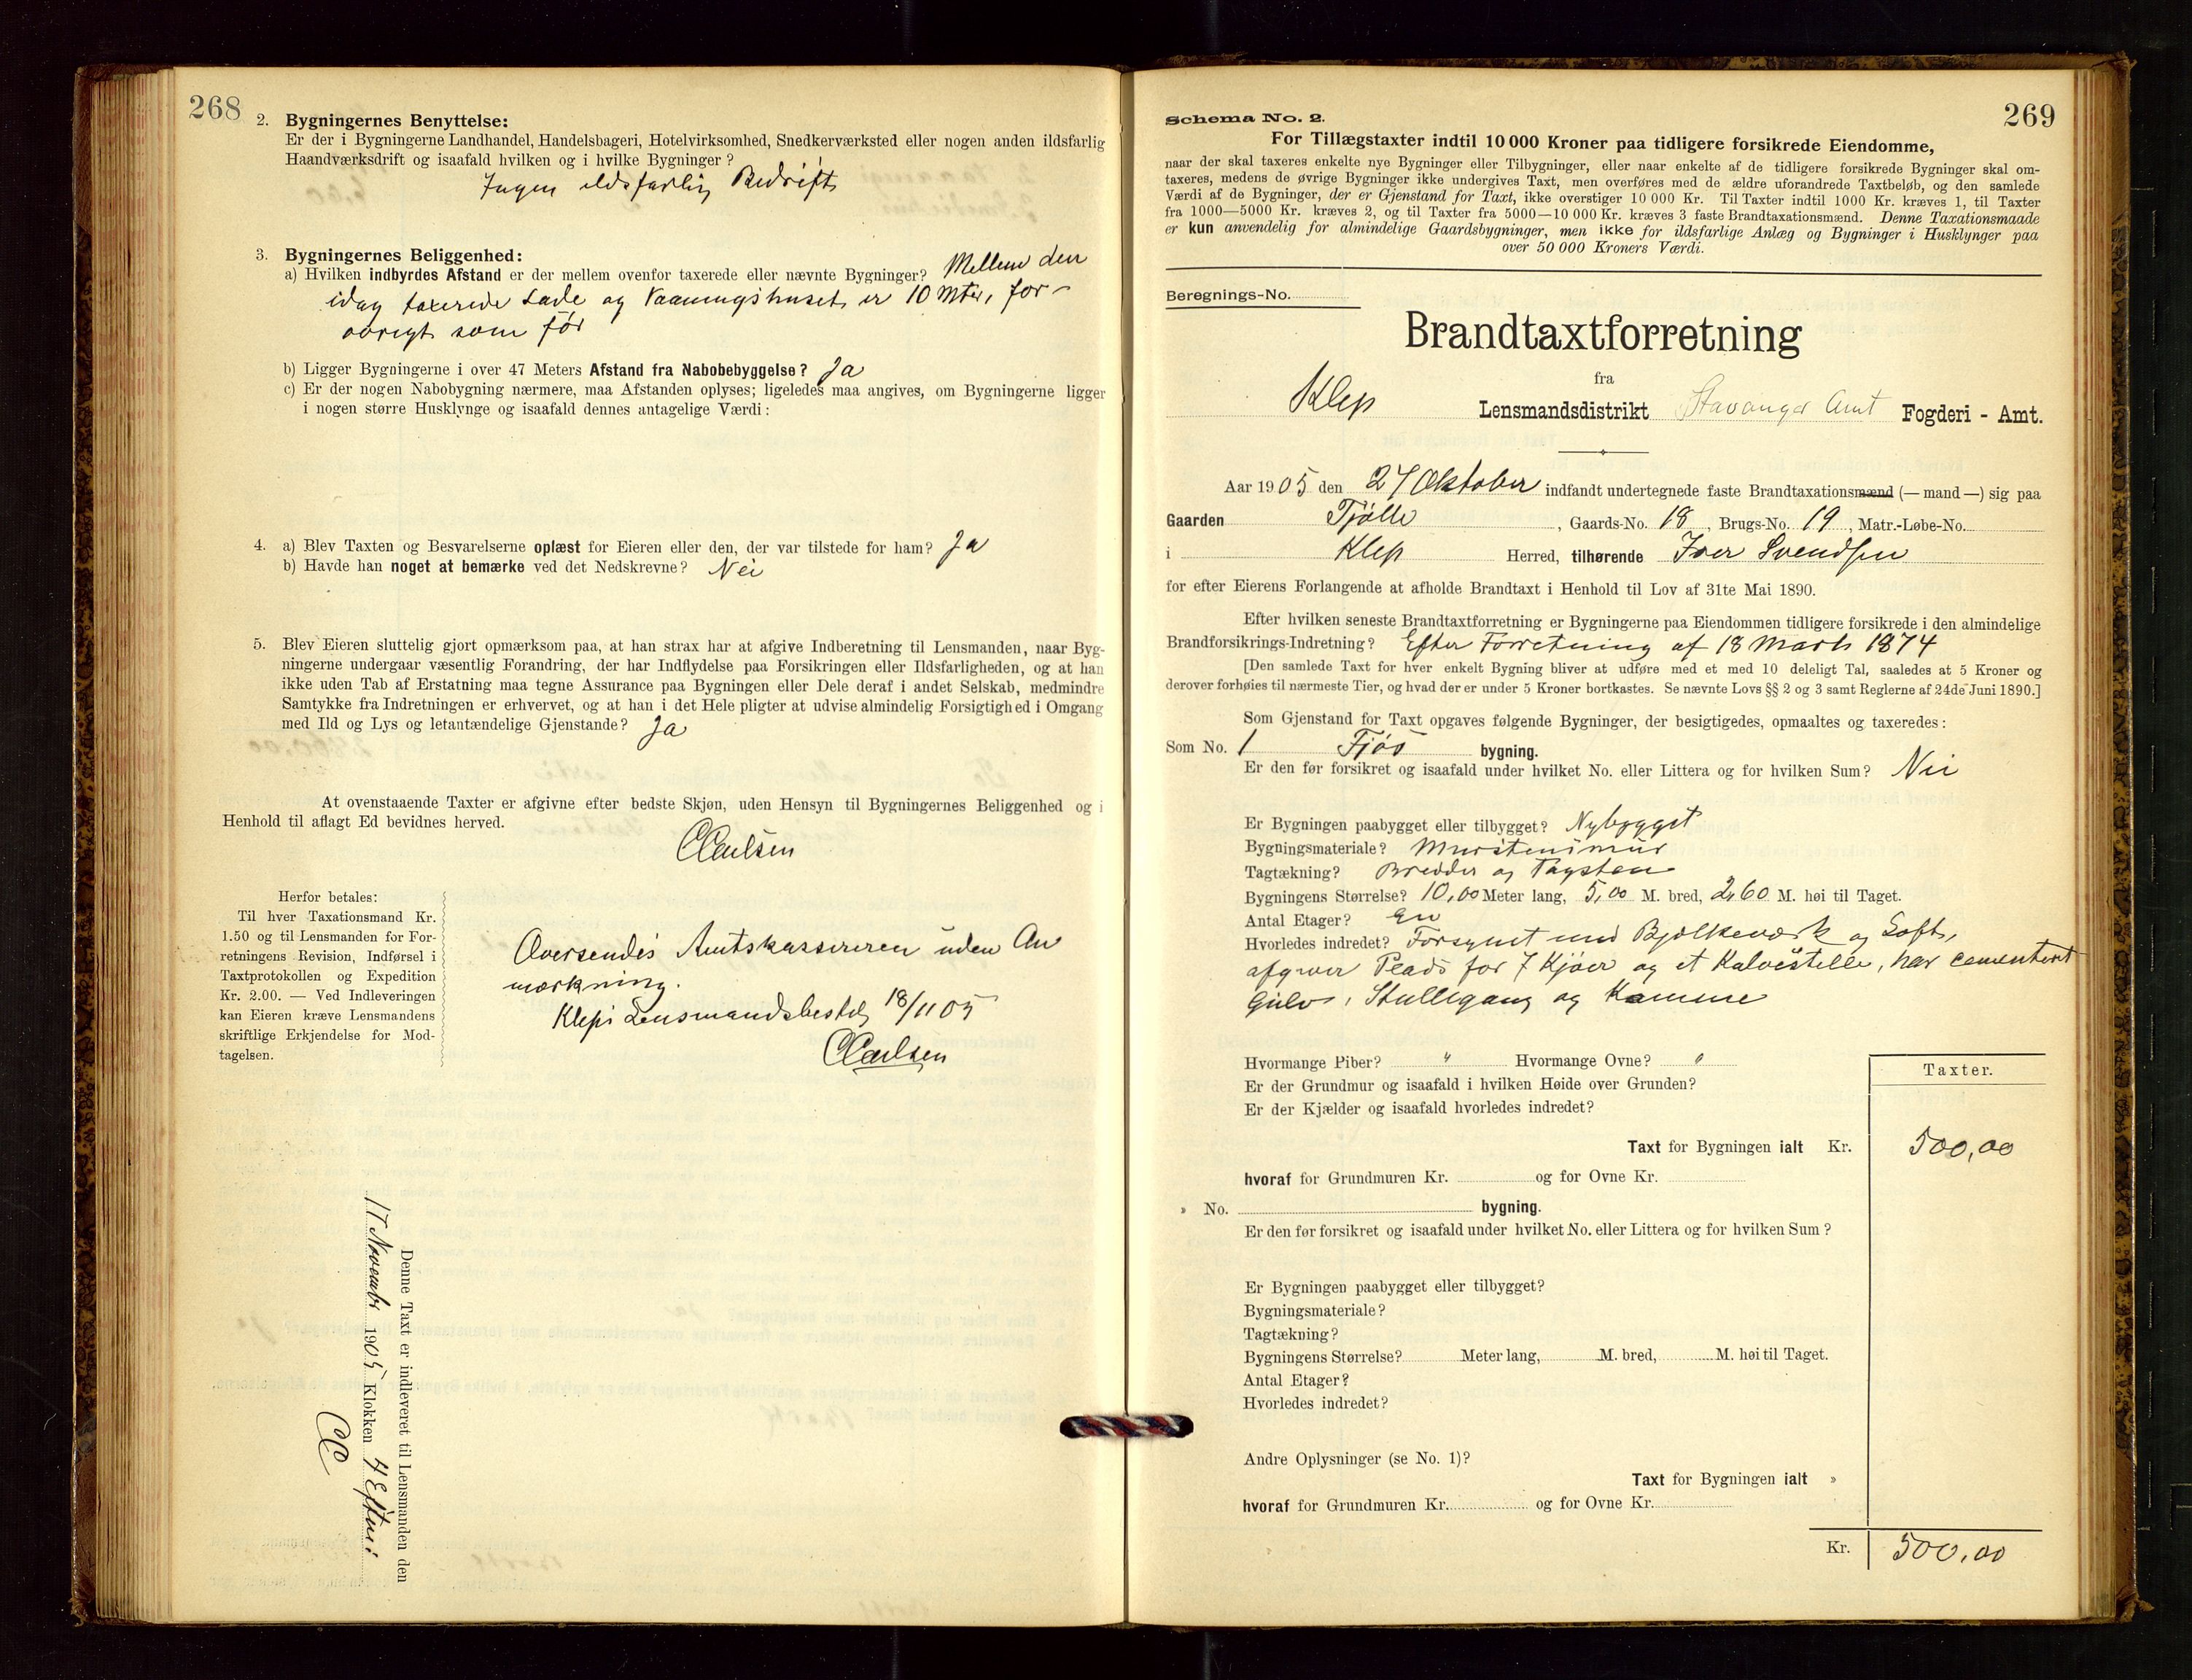 268
2. Bygningernes Benyttelse:
Er der i Bygningerne Landhandel, Handelsbageri, Hotelvirksomhed, Snedkerværksted eller nogen anden ildsfarlig
Haandværksdrift og isaafald hvilken og i hvilke Bygninger?
Ingen ildsfarlig Bedrift
3. Bygningernes Beliggenhed:
a) Hvilken indbyrdes Afstand er der mellem ovenfor taxerede eller nævnte Bygninger? Mellem den
idag taxerede Lade og Vaaningshuset er 10 Mtr, for-
øvrigt som før
b) Ligger Bygningerne i over 47 Meters Afstand fra Nabobebyggelse? Ja
c) Er der nogen Nabobygning nærmere, maa Afstanden oplyses; ligeledes maa angives, om Bygningerne ligger
i nogen større Husklynge og isaafald dennes antagelige Værdi:
4. a) Blev Taxten og Besvarelserne oplæst for Eieren eller den, der var tilstede for ham? Ja
b) Havde han noget at bemærke ved det Nedskrevne? Nei
5. Blev Eieren sluttelig gjort opmærksom paa, at han strax har at afgive Indberetning til Lensmanden, naar Byg-
ningerne undergaar væsentlig Forandring, der har Indflydelse paa Forsikringen eller Ildsfarligheden, og at han
ikke uden Tab af Erstatning maa tegne Assurance paa Bygningen eller Dele deraf i andet Selskab, medmindre
Samtykke fra Indretningen er erhvervet, og at han i det Hele pligter at udvise almindelig Forsigtighed i Omgang
med Ild og Lys og letantændelige Gjenstande? Ja
At ovenstaaende Taxter er afgivne efter bedste Skjøn, uden Hensyn til Bygningernes Beliggenhed og i
Henhold til aflagt Ed bevidnes herved.
CCarlsen
Herfor betales:
Til hver Taxationsmand Kr.
1.50 og til Lensmanden for For-
retningens Revision, Indførsel i
Taxtprotokollen og Expedition
Kr. 2.00. — Ved Indleveringen
kan Eieren kræve Lensmandens
skriftlige Erkjendelse for Mod-
tagelsen.
Oversendes Amtskassereren uden An
mærkning.
Klepi Lensmandsbestilg 18/11 05
CCarlsen
Denne Taxt er indleveret til Lensmanden den
17 Novembr 1905 Klokken 4 Eftmi:
CC
269
Schema No. 2.
For Tillægstaxter indtil 10 000 Kroner paa tidligere forsikrede Eiendomme,
naar der skal taxeres enkelte nye Bygninger eller Tilbygninger, eller naar enkelte af de tidligere forsikrede Bygninger skal om-
taxeres, medens de øvrige Bygninger ikke undergives Taxt, men overføres med de ældre uforandrede Taxtbeløb, og den samlede
Værdi af de Bygninger, der er Gjenstand for Taxt, ikke overstiger 10 000 Kr. Til Taxter indtil 1000 Kr. kræves 1, til Taxter
fra 1000—5000 Kr. kræves 2, og til Taxter fra 5000—10 000 Kr. kræves 3 faste Brandtaxationsmænd. Denne Taxationsmaade
er kun anvendelig for almindelige Gaardsbygninger, men ikke for ildsfarlige Anlæg og Bygninger i Husklynger paa
over 50 000 Kroners Værdi.
Beregnings-No.
Brandtaxtforretning
fra
Klep Lensmandsdistrikt Stavanger Amt Fogderi - Amt.
Aar 1905 den 27 Oktober indfandt undertegnede faste Brandtaxationsmænd (— mand —) sig paa
Gaarden Tjøtte, Gaards-No. 18, Brugs-No. 19, Matr.-Løbe-No.
i Klep Herred, tilhørende Iver Svendsen
for efter Eierens Forlangende at afholde Brandtaxt i Henhold til Lov af 31te Mai 1890.
Efter hvilken seneste Brandtaxtforretning er Bygningerne paa Eiendommen tidligere forsikrede i den almindelige
Brandforsikrings-Indretning? Efter Forretning af 18 Marts 1874
[Den samlede Taxt for hver enkelt Bygning bliver at udføre med et med 10 deleligt Tal, saaledes at 5 Kroner og
derover forhøies til nærmeste Tier, og hvad der er under 5 Kroner bortkastes. Se nævnte Lovs §§ 2 og 3 samt Reglerne af 24de Juni 1890.]
Som Gjenstand for Taxt opgaves følgende Bygninger, der besigtigedes, opmaaltes og taxeredes:
Som No. 1 Fjøs bygning.
Er den før forsikret og isaafald under hvilket No. eller Littera og for hvilken Sum? Nei
Er Bygningen paabygget eller tilbygget? Nybygget
Bygningsmateriale? Murstensmur
Tagtækning? Bredder og Tagsten
Bygningens Størrelse? 10,00 Meter lang, 5,00 M. bred, 2,60 M. høi til Taget.
Antal Etager? En
Hvorledes indredet? Forsynet med Bjelkeværk og Loft,
afgiver Plads for 7 Kjøer og et Kalvestelle, har cementert
Gulv, Stallegang og Kamme
Hvormange Piber? " Hvormange Ovne? "
Er der Grundmur og isaafald i hvilken Høide over Grunden?
Er der Kjælder og isaafald hvorledes indredet?
Taxter.
Taxt for Bygningen ialt Kr. 500,00
hvoraf for Grundmuren Kr. og for Ovne Kr.
» No. bygning.
Er den før forsikret og isaafald under hvilket No. eller Littera og for hvilken Sum?
Er Bygningen paabygget eller tilbygget?
Bygningsmateriale?
Tagtækning?
Bygningens Størrelse? Meter lang, M. bred, M. høi til Taget.
Antal Etager?
Hvorledes indredet?
Andre Oplysninger (se No. 1)?
Taxt for Bygningen ialt »
hvoraf for Grundmuren Kr. og for Ovne Kr.
Kr. 500,00